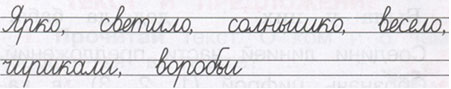 Ярко, светило, солнышко, весело,
чирикали, воробьи